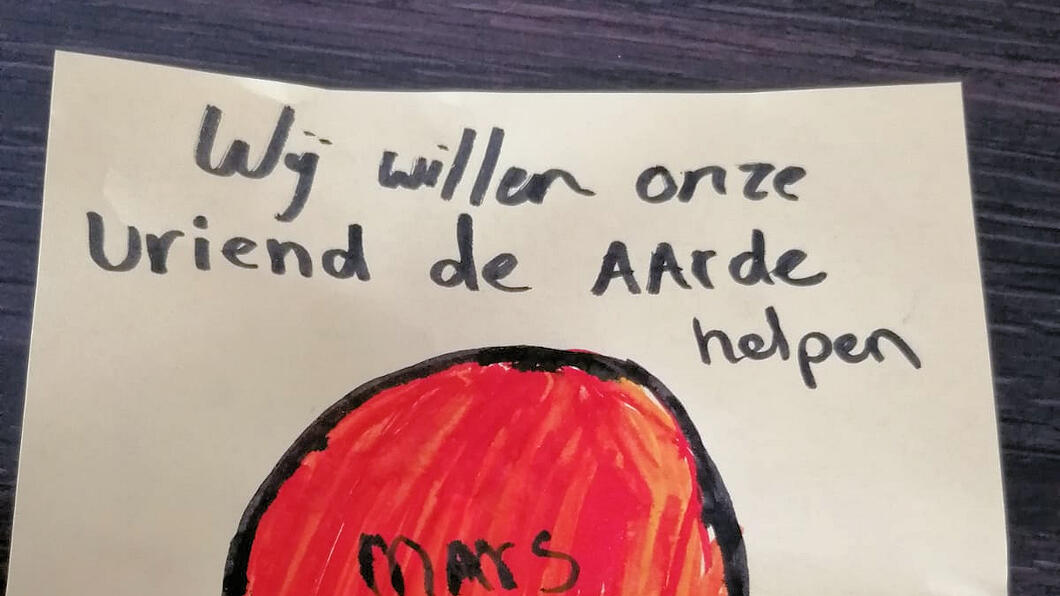 Wij willen onze
Vriend de AArde
helpen
MArs